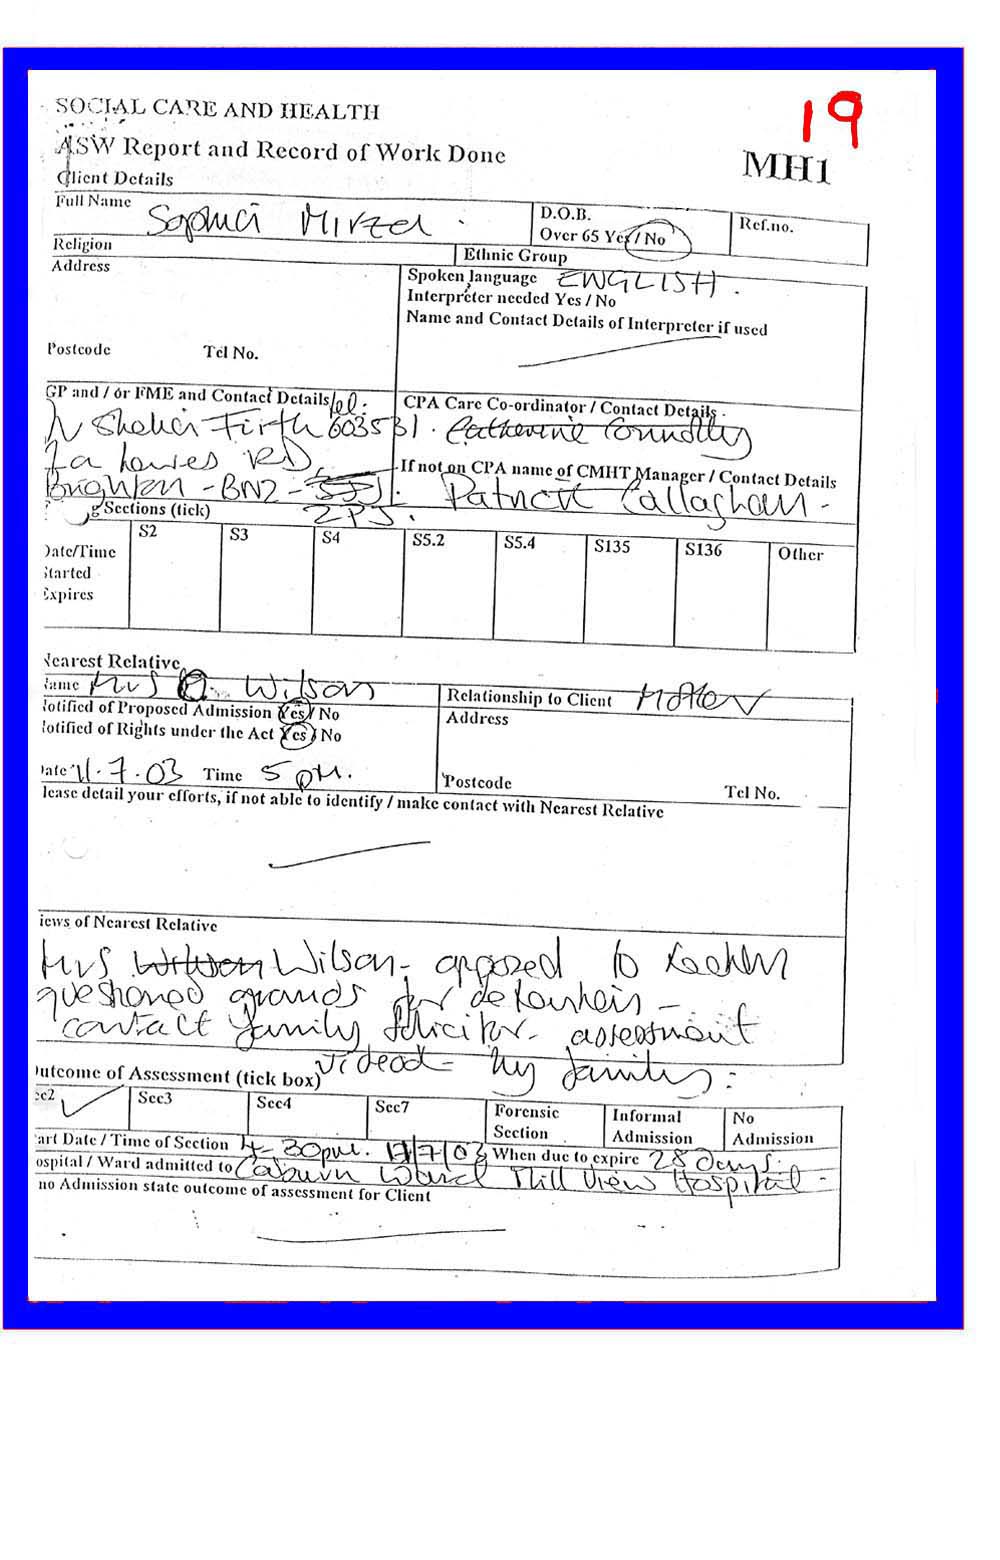 19
SOCIAL CARE AND HEALTH
ASW Report and Record of Work Done
MH1
Client Details
Full Name Sophia Mirza
D.O.B.
Over 65 Yes / No
Ref.no.
Religion
Ethnic Group
Address
Spoken language ENGLISH.
Interpreter needed Yes / No
Name and Contact Details of Interpreter if used
Postcode Tel No.
GP and / or FME and Contact Details Tel:
CPA Care Co-ordinator / Contact Details
Firth 603531. Catherine Connolly
RD,
If not on CPA name of CMHT Manager / Contact Details
Brighton - BN2 - Patrick Callaghan -
2PJ.
g Sections (tick)
S2 S3 S4 S5.2 S5.4 S135 S136 Other
Date/Time
Started
Expires
Nearest Relative
Name Mrs Wilson
Relationship to Client Mother
Notified of Proposed Admission Yes / No
Address
Notified of Rights under the Act Yes / No
Date 11.7.03 Time 5 pm.
Postcode Tel No.
lease detail your efforts, if not able to identify / make contact with Nearest Relative
iews of Nearest Relative
Mrs Wilson - opposed to
questioned grounds for detention -
contact family solicitor - assessment
videod - by family:
utcome of Assessment (tick box)
ec2 Sec3 Sec4 Sec7 Forensic Section Informal Admission No Admission
art Date / Time of Section 4-30pm. /7/03 When due to expire 28 days.
ospital / Ward admitted to Caburn Ward Mill View Hospital -
no Admission state outcome of assessment for Client